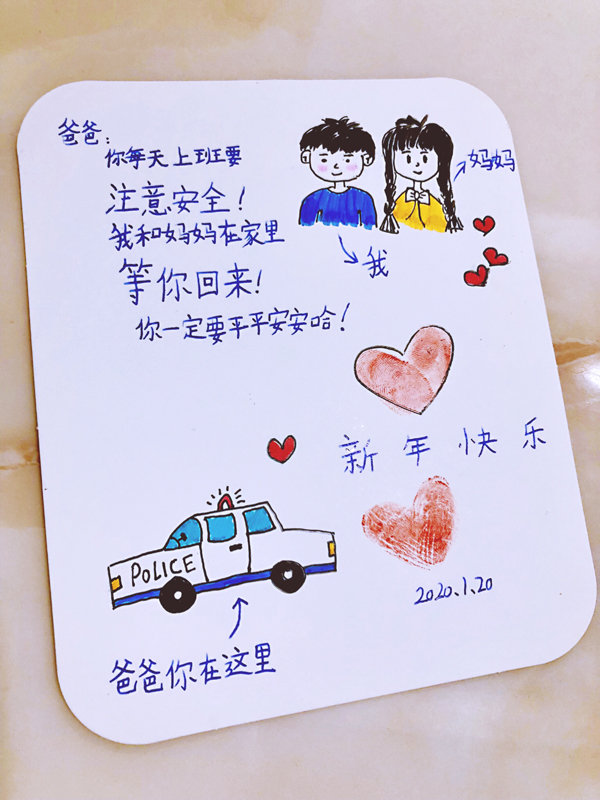 爸爸：
你每天上班要
注意安全！
我和妈妈在家里
等你回来！
你一定要平平安安哈！
妈妈
我
新年快乐
POLICE
2020.1.20
爸爸你在这里